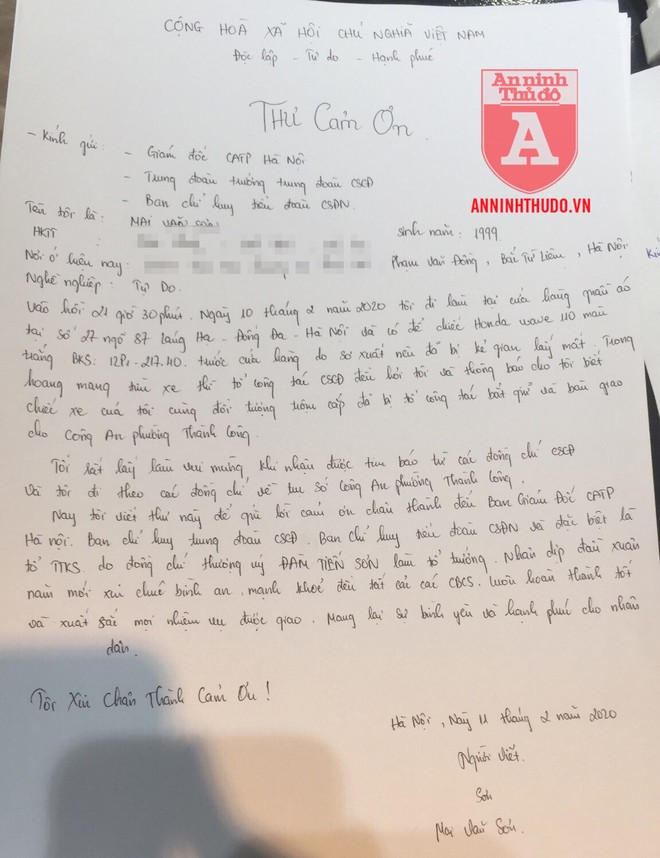 CỘNG HOÀ XÃ HỘI CHỦ NGHĨA VIỆT NAM
Độc lập - Tự do - Hạnh phúc
An ninh
Thủ đô
A
ANNINHTHUDO.VN
THƯ Cảm Ơn
- Kính gửi: - Giám đốc CATP Hà Nội
- Trung đoàn trưởng trung đoàn CSCĐ
- Ban chỉ huy tiểu đoàn CSĐN.
Tên tôi là: MAI VĂN SƠN sinh năm: 1999
HKTT :
Nơi ở hiện nay: Phạm Văn Đồng, Bắc Từ Liêm, Hà Nội
Nghề nghiệp: Tự Do.
Vào hồi 21 giờ 30 phút. Ngày 10 tháng 2 năm 2020 tôi đi làm tại cửa hàng quần áo
tại số 27 ngõ 87 Láng Hạ - Đống Đa - Hà Nội và có để chiếc Honda wave 110 màu
trắng BKS: 12P1-217.40. trước cửa hàng do sơ xuất nên đã bị kẻ gian lấy mất. Trong
hoang mang tìm xe thì tổ công tác CSCĐ đến hỏi tôi và thông báo cho tôi biết
chiếc xe của tôi cùng đối tượng trộm cắp đã bị tổ công tác bắt giữ và bàn giao
cho Công An phường Thành Công.
Tôi rất lấy làm vui mừng khi nhận được tin báo từ các đồng chí CSCĐ
và tôi đi theo các đồng chí về trụ sở Công An phường Thành Công.
Nay tôi viết thư này để gửi lời cảm ơn chân thành đến Ban Giám Đốc CATP
Hà Nội. Ban chỉ huy trung đoàn CSCĐ. Ban chỉ huy tiểu đoàn CSĐN và đặc biệt là
tổ TTKS do đồng chí thượng uý ĐÀM TIẾN SƠN làm tổ trưởng. Nhân dịp đầu xuân
năm mới xin chúc bình an, mạnh khoẻ đến tất cả các CBCS. luôn hoàn thành tốt
và xuất sắc mọi nhiệm vụ được giao. Mang lại sự bình yên và hạnh phúc cho nhân
dân.
Tôi Xin Chân Thành Cảm Ơn!
Hà Nội, Ngày 11 tháng 2 năm 2020
Người viết.
Sơn
Mai Văn Sơn.